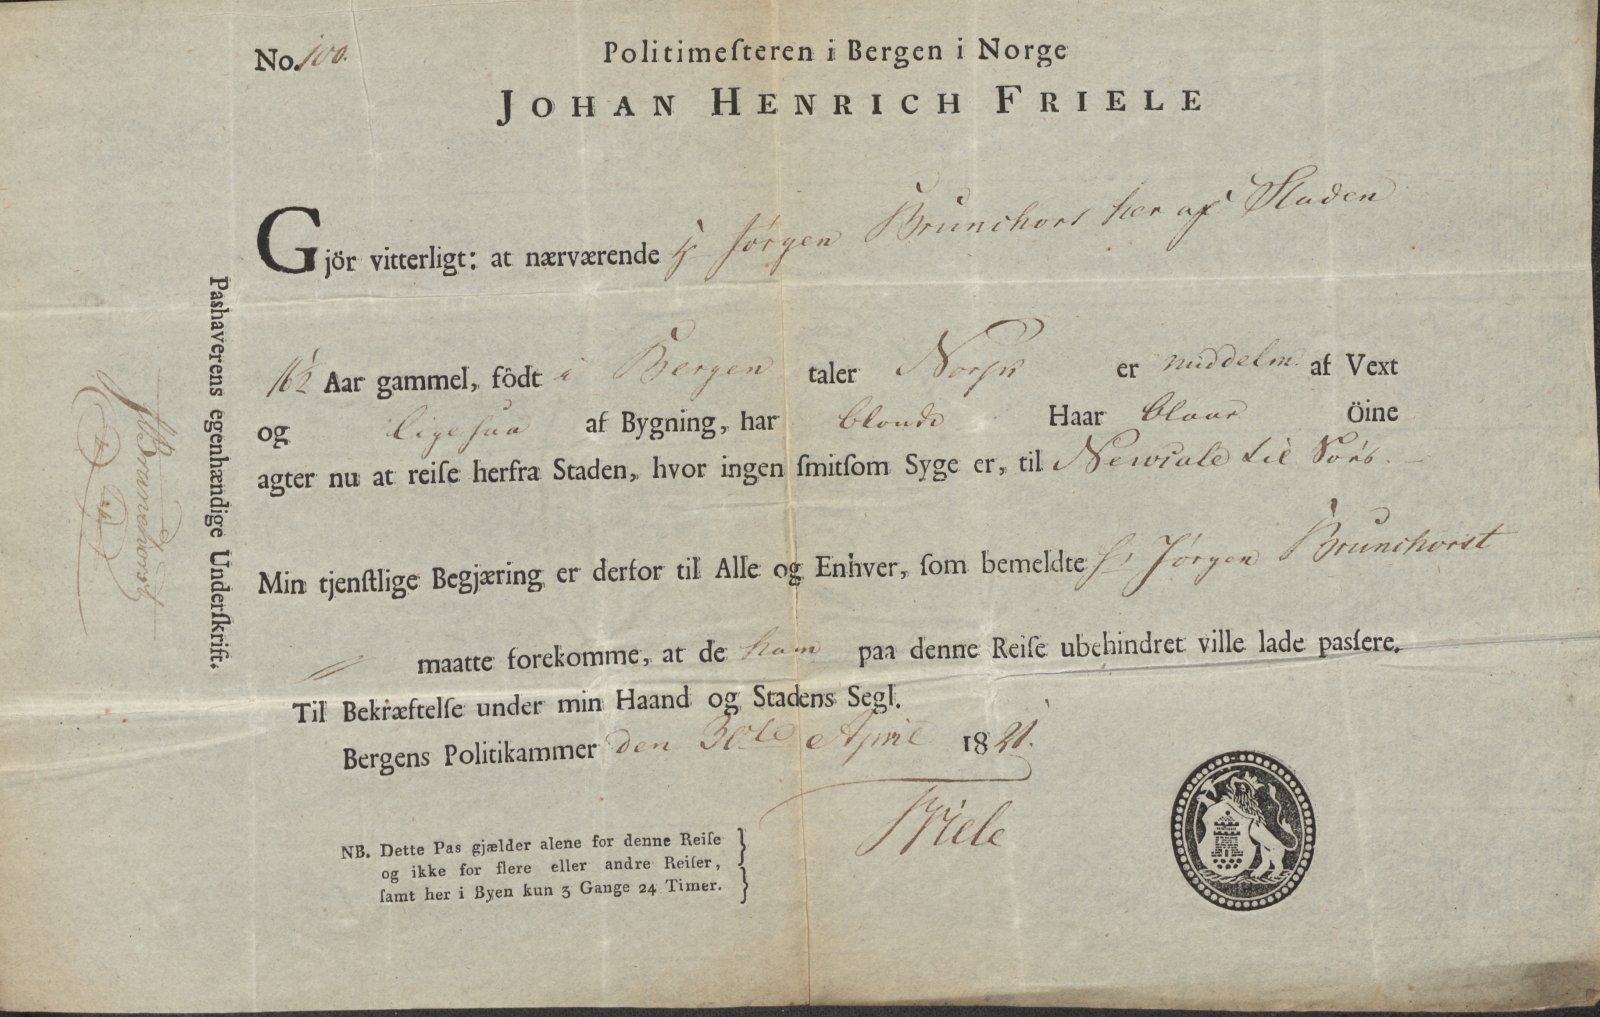 No. 100.
Politimeſteren i Bergen i Norge
JOHAN HENRICH FRIELE
Gjör vitterligt: at nærværende Hr Jörgen Brunchorst her af Staden
16½ Aar gammel, födt i Bergen taler Norsk er middelm. af Vext
og ligesaa af Bygning, har blonde Haar blaae Öine
agter nu at reiſe herfra Staden, hvor ingen ſmitſom Syge er, til Newcale til Söes.
Min tjenſtlige Begjæring er derfor til Alle og Enhver, ſom bemeldte Hr Jörgen Brunchorst
maatte forekomme, at de ham paa denne Reiſe ubehindret ville lade paſſere.
Til Bekræftelſe under min Haand og Stadens Segl.
Bergens Politikammer den 30te April 1821.
Friele
NB. Dette Pas gjælder alene for denne Reiſe
og ikke for flere eller andre Reiſer,
ſamt her i Byen kun 3 Gange 24 Timer.
Pashaverens egenhændige Underſkrift.
Brunchorst